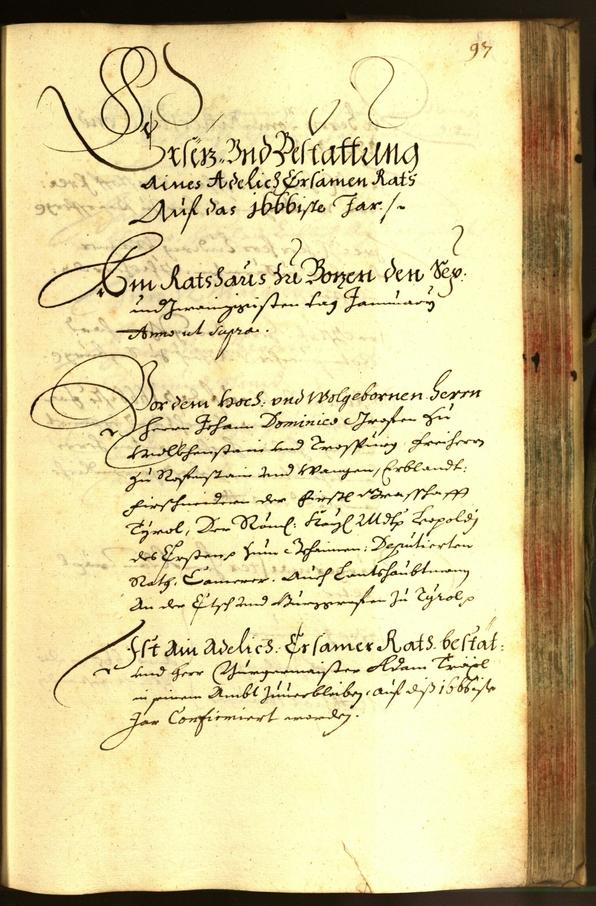 97
Ersez- Und Bestattung
aines Adelich Ersamen Rats
Auf das 1666iste Jar./.
Am Ratshaus zu Bozen den Sex:
undzwainzigisten tag Januarÿ
Anno ut supra.
Vor dem Hoch: und Wolgebornen Herrn
Herrn Johann Dominico Grafen zu
Wolkhenstain und Trospurg Freiherrn
zu und Wangen, Erblandt:
der Fürstl: Graffschafft
Tyrol, Der Röm: Kayl: Mdt: Leopoldj
des Ersten zum Gehaimen. Deputierten
Rath, Camerer. Auch Landtshaubtmann
An der Etsch und Burggrafen zu Tyrol
Ist Ain Adelich: Ersamer Rath bestät:
und Herr Burgermaister Adam
in seinem Ambt zuuerbleiben, auf diß 1666iste
Jar Confirmiert worden.